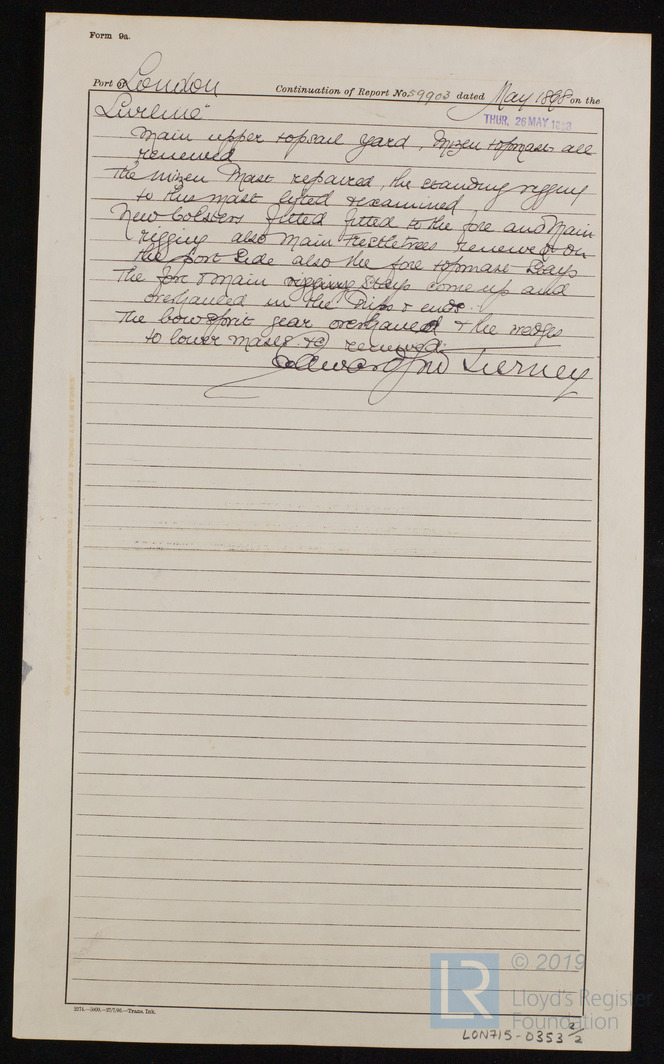 Form 9a.
Port of London Continuation of Report No 59903 dated May 1898 on the
THUR. 26 MAY 1898
Main upper topsail yard, Mizen topmast all
renewed
The mizen Mast repaired, the standing rigging
to this mast lifted & examined
New bolsters fitted fitted to the fore and Main
rigging also Main trestletrees renewed on
the port Side also the fore topmast Stays
The fore & main rigging Stays come up and
overhauled in the Nips & ends.
The bowsprit gear overhauled & the wedges
to lower masts renewed.
Tierney
2274.—5000.—27/7/96.—Trans. Ink.
© 2019
LR Lloyd's Register
Foundation
LON715-0353 2/2